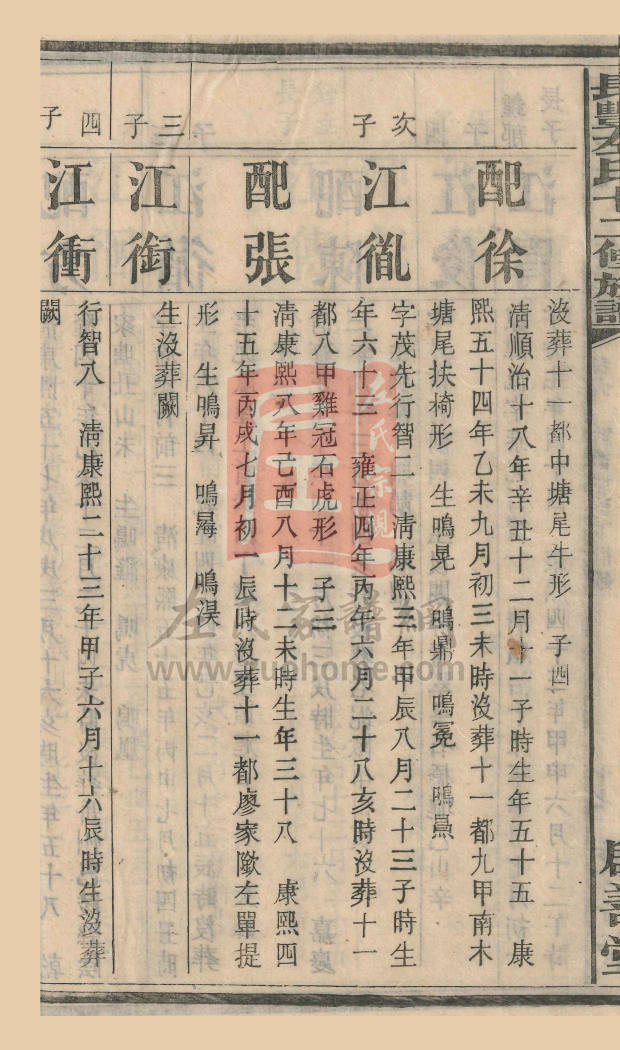 長豐左氏十二修族譜
沒葬十一都中塘尾牛形 子四
配徐
清順治十八年辛丑十二月十一子時生年五十五 康
熙五十四年乙未九月初三未時沒葬十一都九甲南木
塘尾扶椅形 生鳴晃 鳴鼎 鳴冕
次子
江胤
字茂先行智二 清康熙三年甲辰八月二十三子時生
年六十三 雍正四年丙午六月二十八亥時沒葬十一
都八甲雞冠石虎形 子三
配張
清康熙八年己酉八月十二未時生年三十八 康熙四
十五年丙戌七月初一辰時沒葬十一都廖家㙟左單提
形 生鳴昇 鳴 鳴淏
三子
江銜
生沒葬闕
四子
江衝
行智八 清康熙二十三年甲子六月十六辰時生沒葬
闕
左氏宗親
左氏家譜網
www.zuohome.com